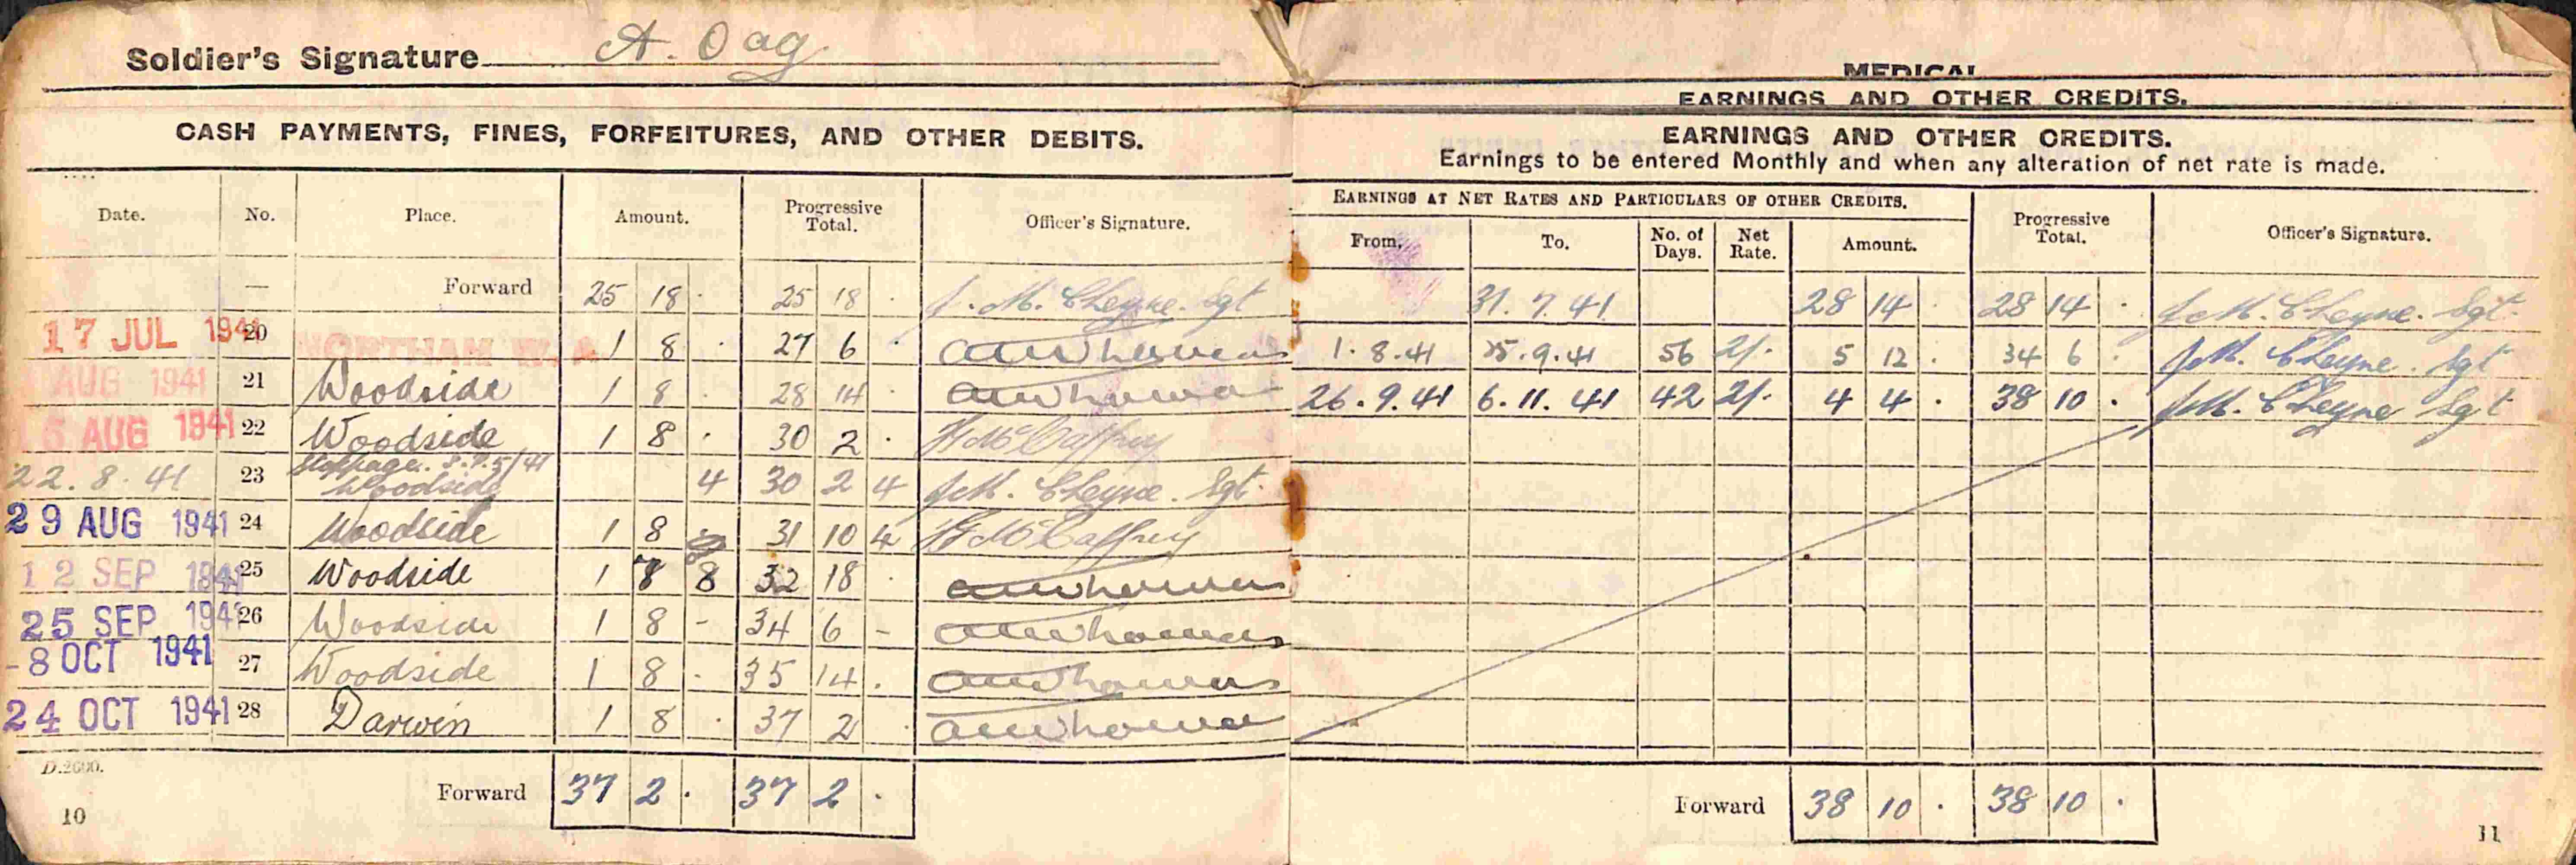 Soldier's Signature A. Oag
CASH PAYMENTS, FINES, FORFEITURES, AND OTHER DEBITS.
Date. No. Place. Amount. Progressive Total. Officer's Signature.
— Forward 25 18 . 25 18 . J. M. Cheyne. Sgt
17 JUL 1941 20 NORTHAM W.A 1 8 . 27 6 .
AUG 1941 21 Woodside 1 8 . 28 14 .
15 AUG 1941 22 Woodside 1 8 . 30 2 . McCaffrey
Stoppage.
22.8.41 23 Woodside 4 30 2 4 J.M. Cheyne. Sgt.
29 AUG 1941 24 Woodside 1 8 31 10 4 McCaffrey
12 SEP 1941 25 Woodside 1 7 8 32 18 .
25 SEP 1941 26 Woodside 1 8 - 34 6 -
-8 OCT 1941 27 Woodside 1 8 . 35 14 .
24 OCT 1941 28 Darwin 1 8 . 37 2 .
D.2690.
Forward 37 2 . 37 2 .
10
MEDICAL
EARNINGS AND OTHER CREDITS.
EARNINGS AND OTHER CREDITS.
Earnings to be entered Monthly and when any alteration of net rate is made.
EARNINGS AT NET RATES AND PARTICULARS OF OTHER CREDITS. Progressive Total. Officer's Signature.
From. To. No. of Days. Net Rate. Amount.
31.7.41 28 14 . 28 14 . J.M. Cheyne. Sgt.
1.8.41 25.9.41 56 2/- 5 12 . 34 6 . J.M. Cheyne. Sgt
26.9.41 6.11.41 42 2/- 4 4 . 38 10 . J.M. Cheyne Sgt
Forward 38 10 . 38 10 .
11